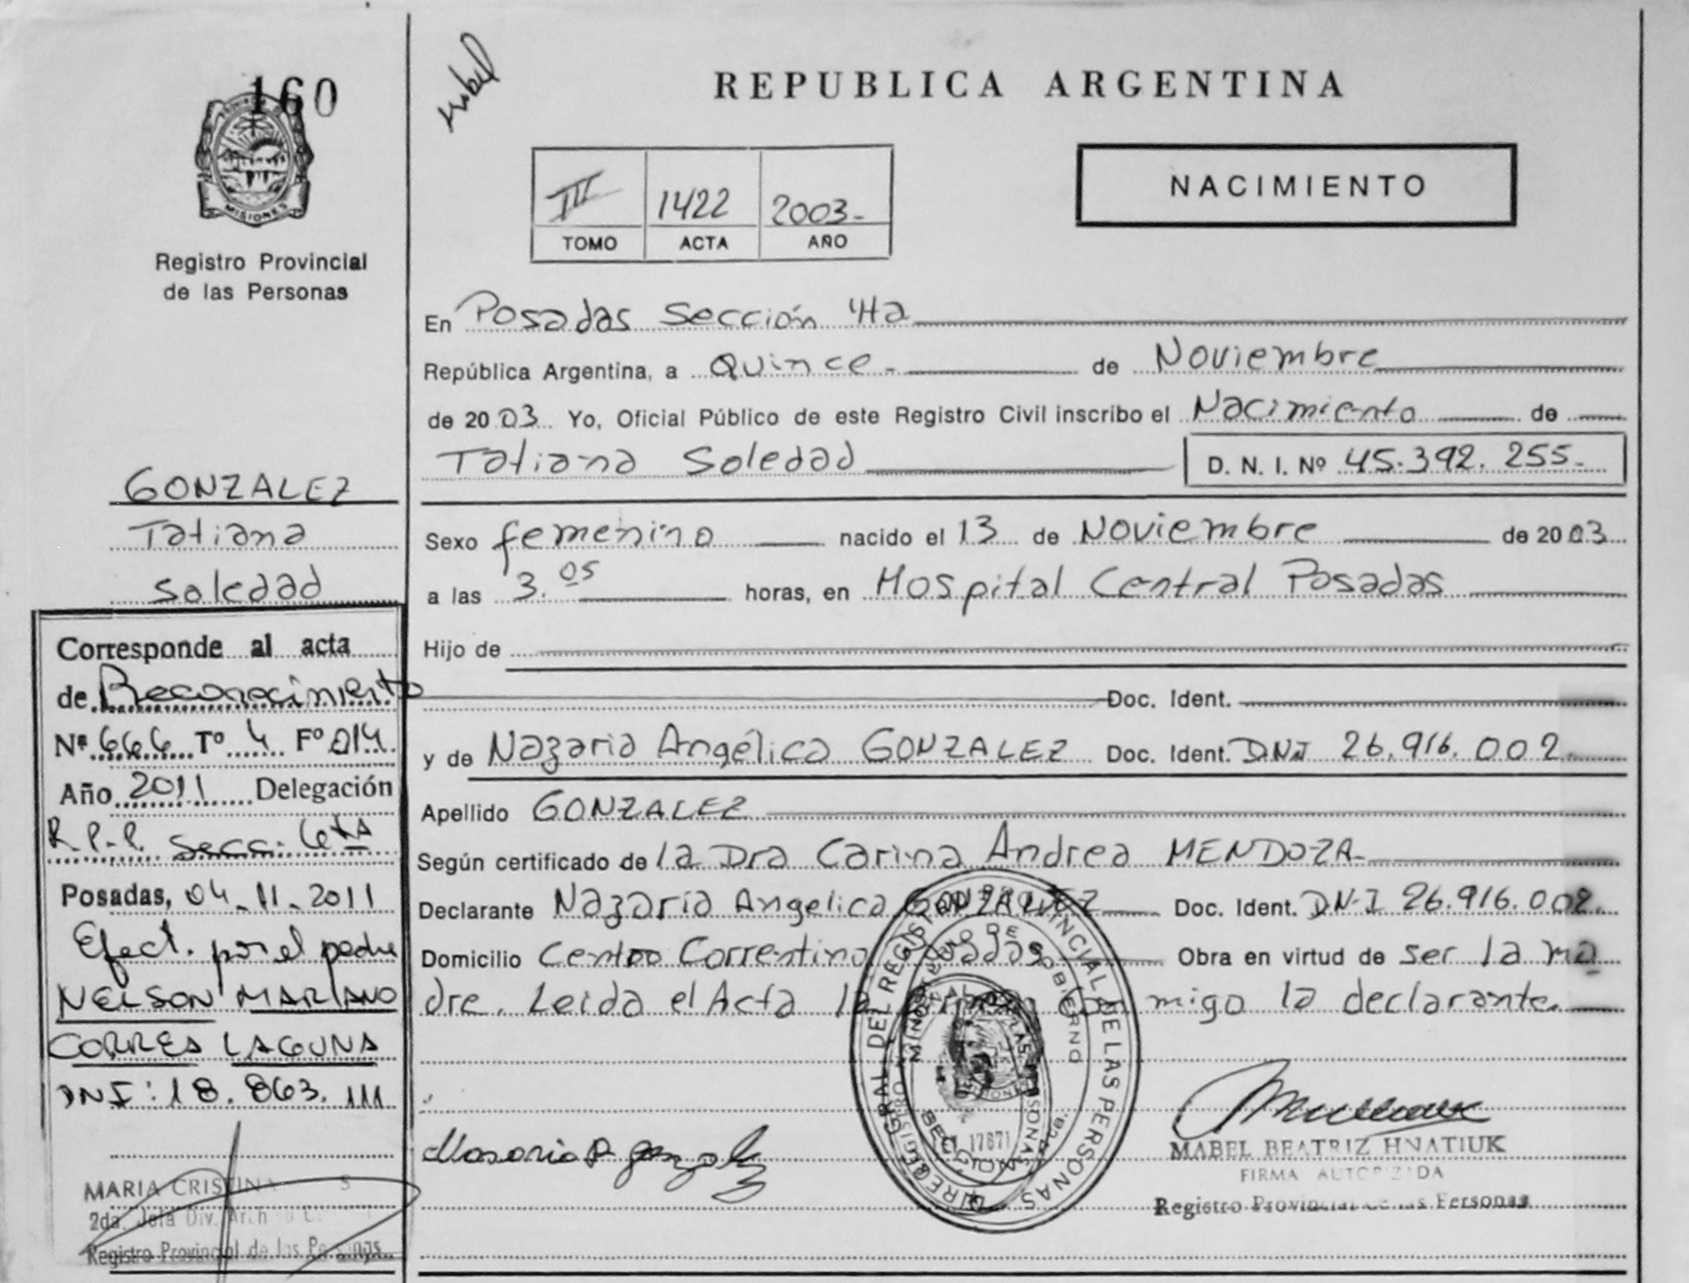 160
MISIONES
Registro Provincial
de las Personas
GONZALEZ
Tatiana
Soledad
Corresponde al acta
de Reconocimiento
Nº 666 Tº 4 Fº 014
Año 2011 Delegación
R.P.P. Secc. 6ta
Posadas, 04-11-2011
Efect. por el padre
NELSON MARIANO
CORREA LAGUNA
DNI: 18.863.111
MARIA CRISTINA
2da. Jefa Div.
Registro Provincial de las Personas
REPUBLICA ARGENTINA
III 1422 2003-
TOMO ACTA AÑO
NACIMIENTO
En Posadas Sección 4ta
República Argentina, a Quince - de Noviembre
de 2003 Yo, Oficial Público de este Registro Civil inscribo el Nacimiento de
Tatiana Soledad D. N. I. Nº 45.392.255-
Sexo femenino nacido el 13 de Noviembre de 2003
a las 3.05 horas, en Hospital Central Posadas
Hijo de
Doc. Ident.
y de Nazaria Angélica GONZALEZ Doc. Ident. DNI 26.916.002-
Apellido GONZALEZ
Según certificado de la Dra Carina Andrea MENDOZA-
Declarante Nazaria Angelica GONZALEZ Doc. Ident. DN.I 26.916.002.
Domicilio Centro Correntino Posadas Obra en virtud de ser la ma
dre. Leida el Acta la firma conmigo la declarante.
DIRECCION GRAL. DEL REGISTRO PROVINCIAL DE LAS PERSONAS
MINISTERIO DE GOBIERNO
MABEL BEATRIZ HNATIUK
FIRMA AUTORIZADA
Registro Provincial de las Personas